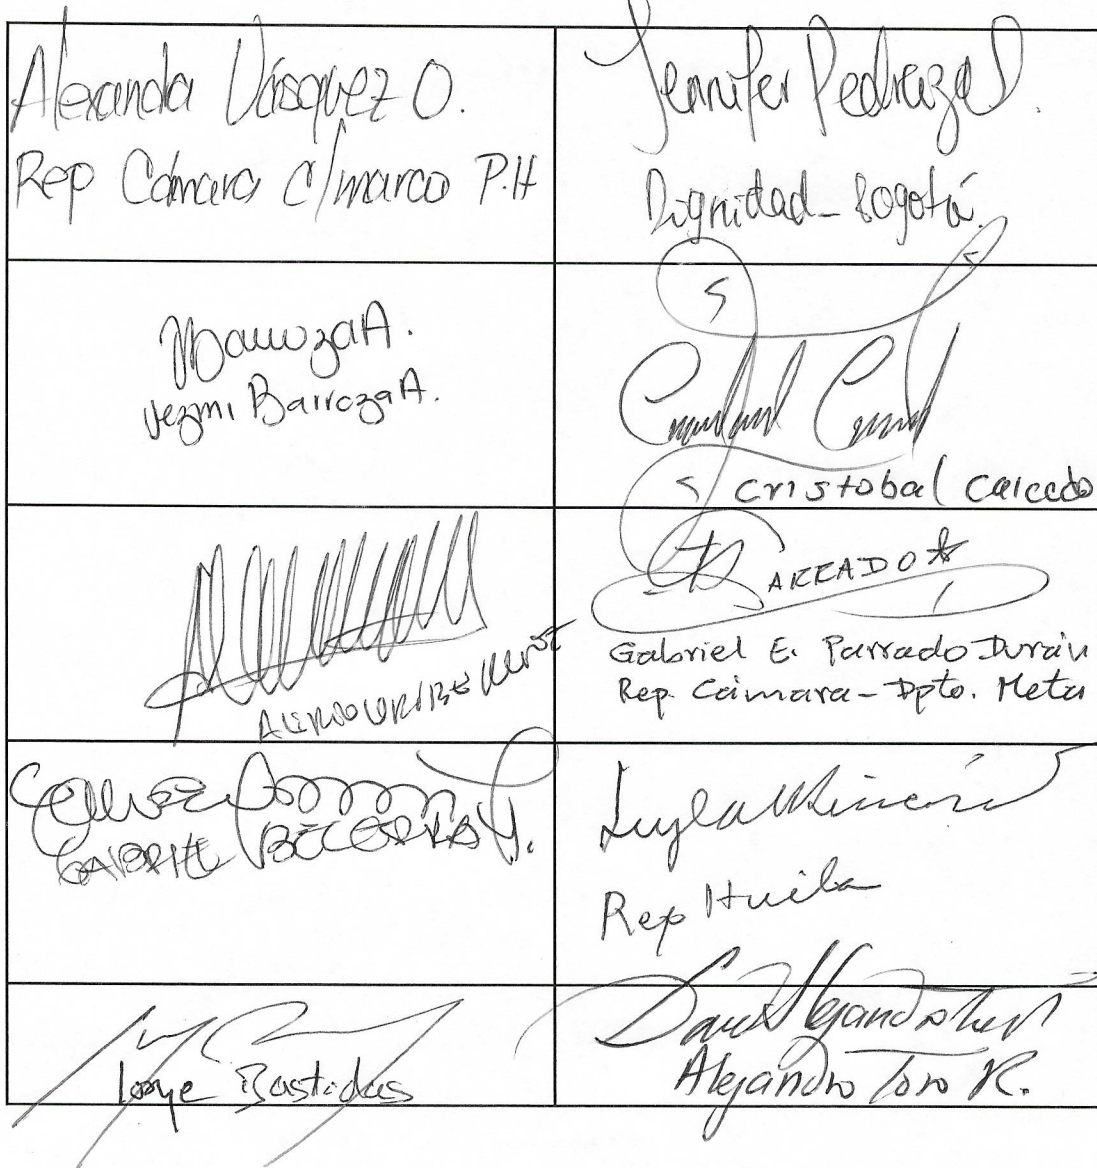 Alexandra Vásquez O.
Rep Cámara C/marca P.H
Jennifer Pedraza S.
Dignidad - Bogotá.
YBarrozaA.
Yezmi Barroza A.
Cristobal Caicedo
PARRADO
Gabriel E. Parrado Durán
Rep. Cámara - Dpto. Meta
ALIRIO URIBE MUÑOZ
GABRIEL BECERRA Y.
Leyla Rincón
Rep Huila
Jorge Bastidas
David Alejandro Toro
Alejandro Toro R.